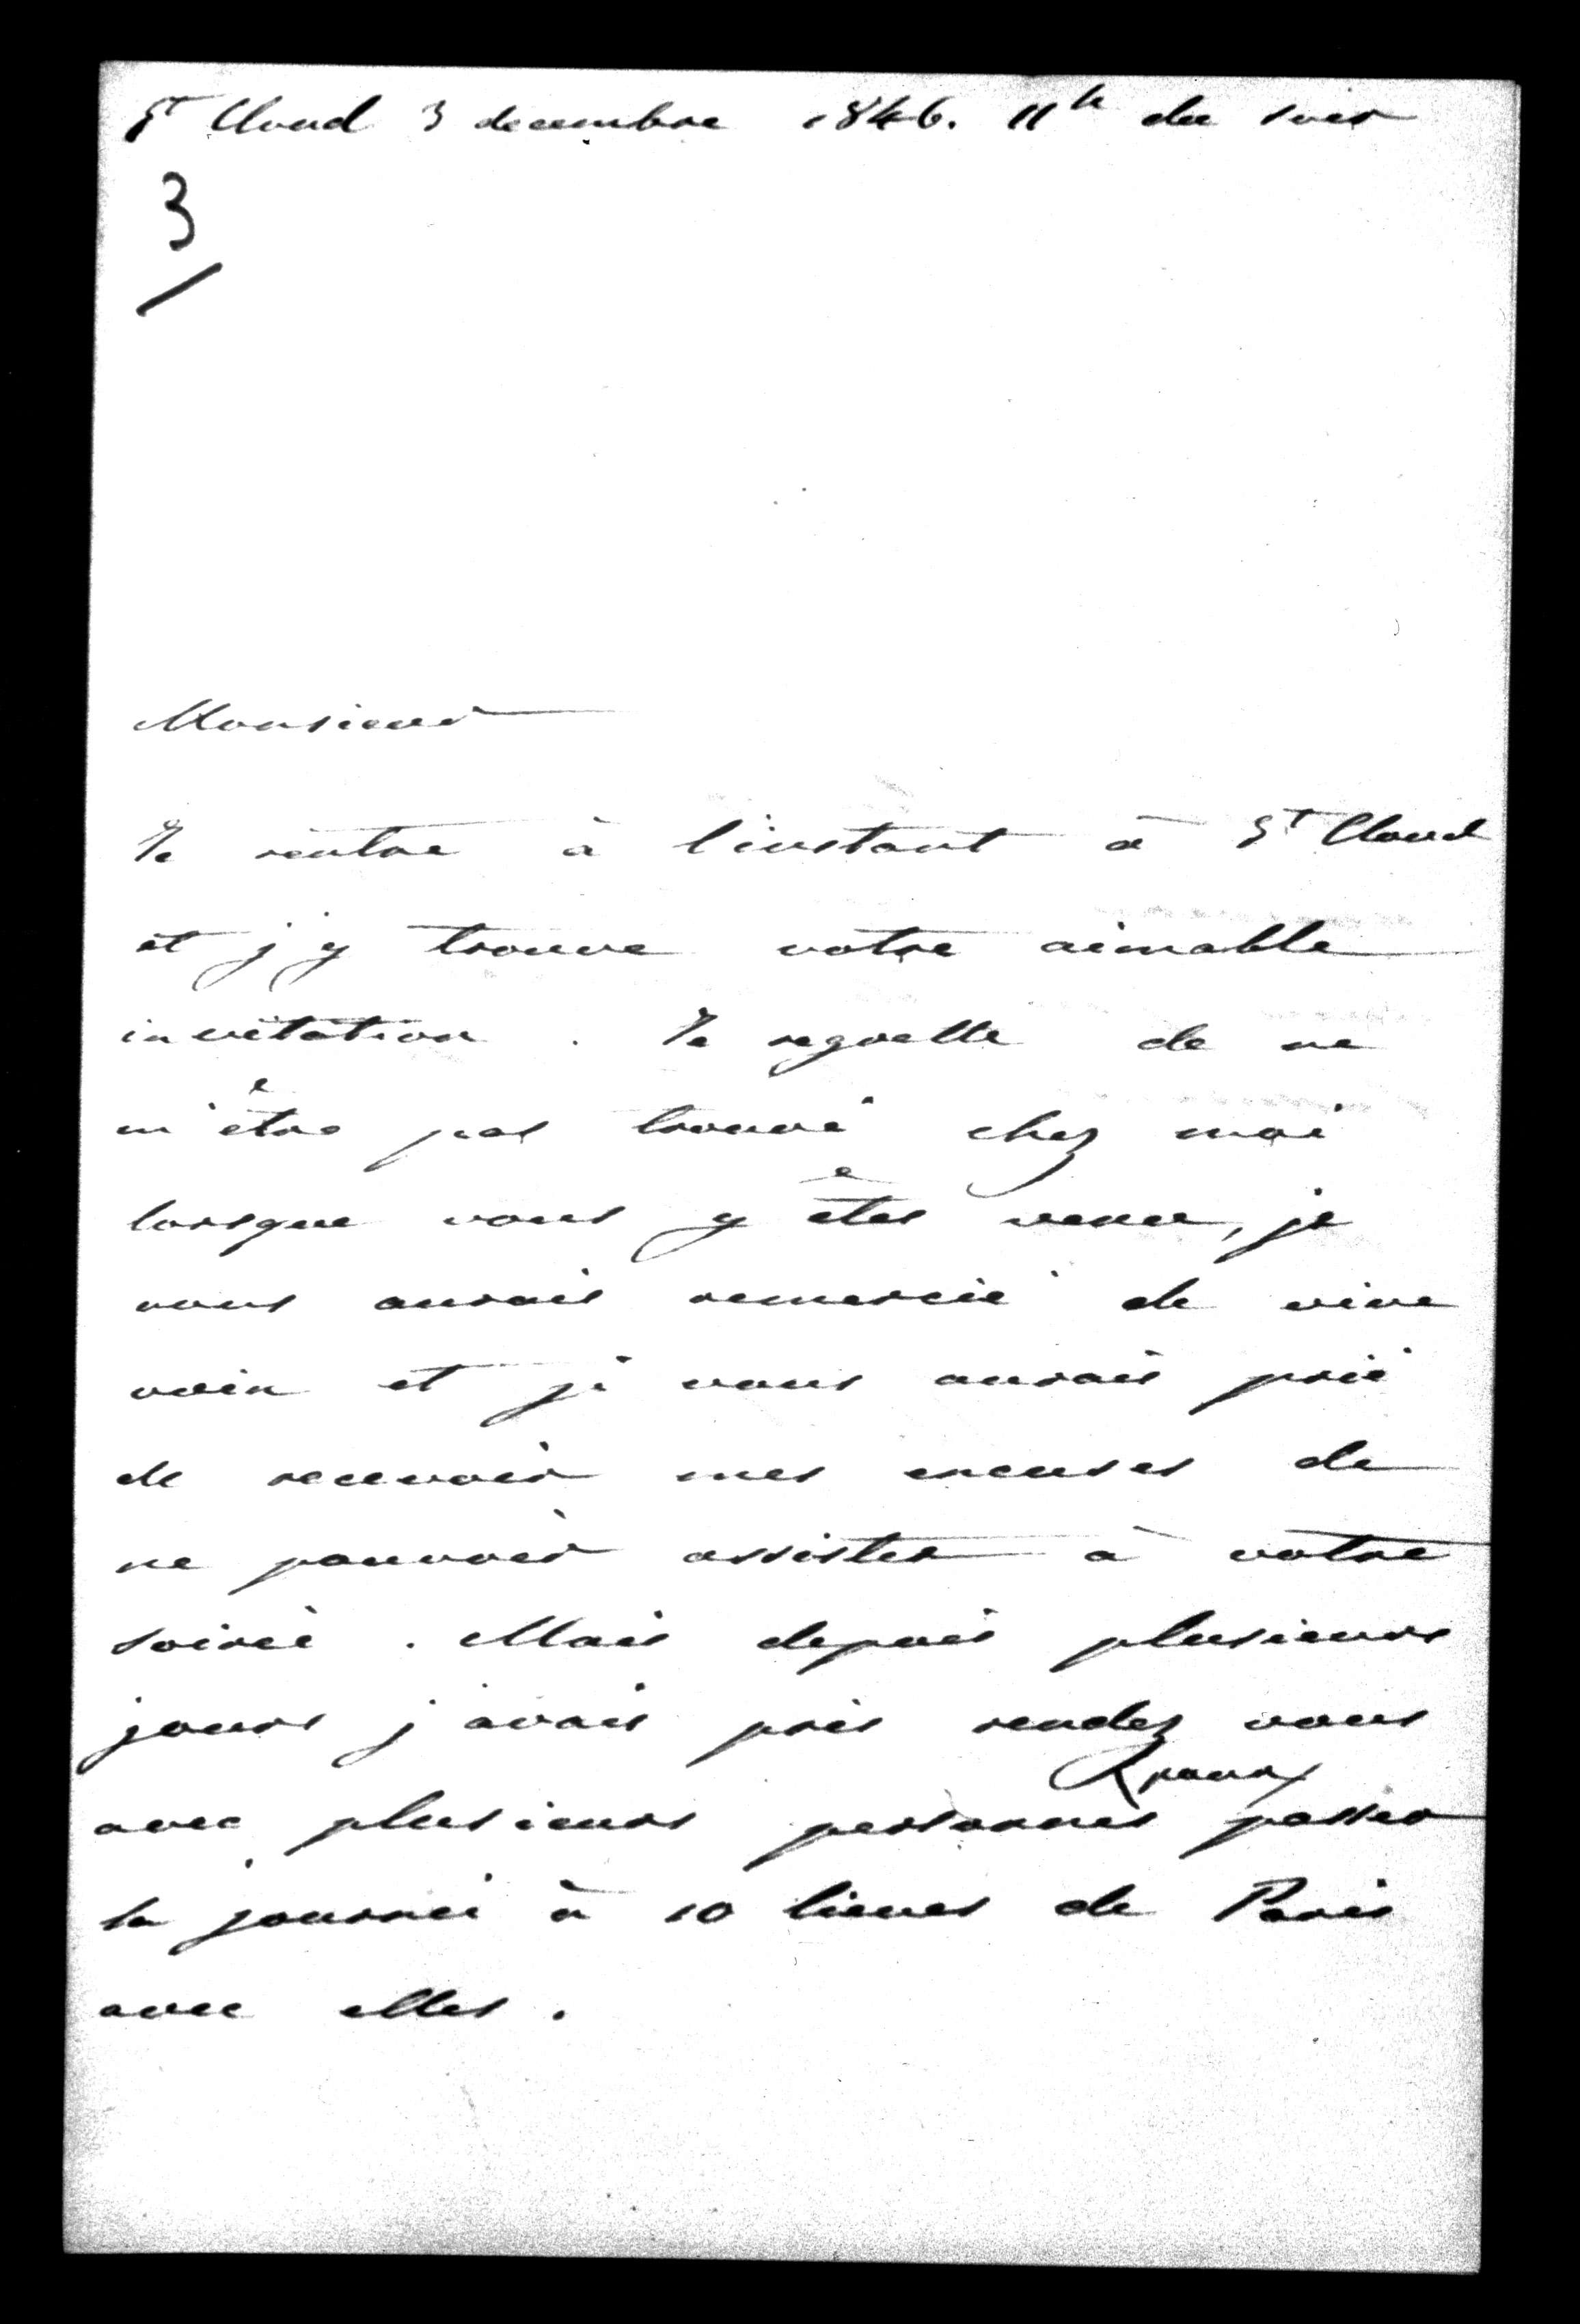 St Cloud 3 decembre 1846. 11h du soir
3
Monsieur
Je rentre à l'instant à St Cloud
et j'y trouve votre aimable
invitation. Je regrette de ne
m'être pas trouvé chez moi
lorsque vous y êtes venu, je
vous aurais remercié de vive
voix et je vous aurais prié
de recevoir mes excuses de
ne pouvoir assister à votre
soirée. Mais depuis plusieurs
jours j'avais pris rendez vous
pour
avec plusieurs personnes passer
la journée à 10 lieues de Paris
avec elles.